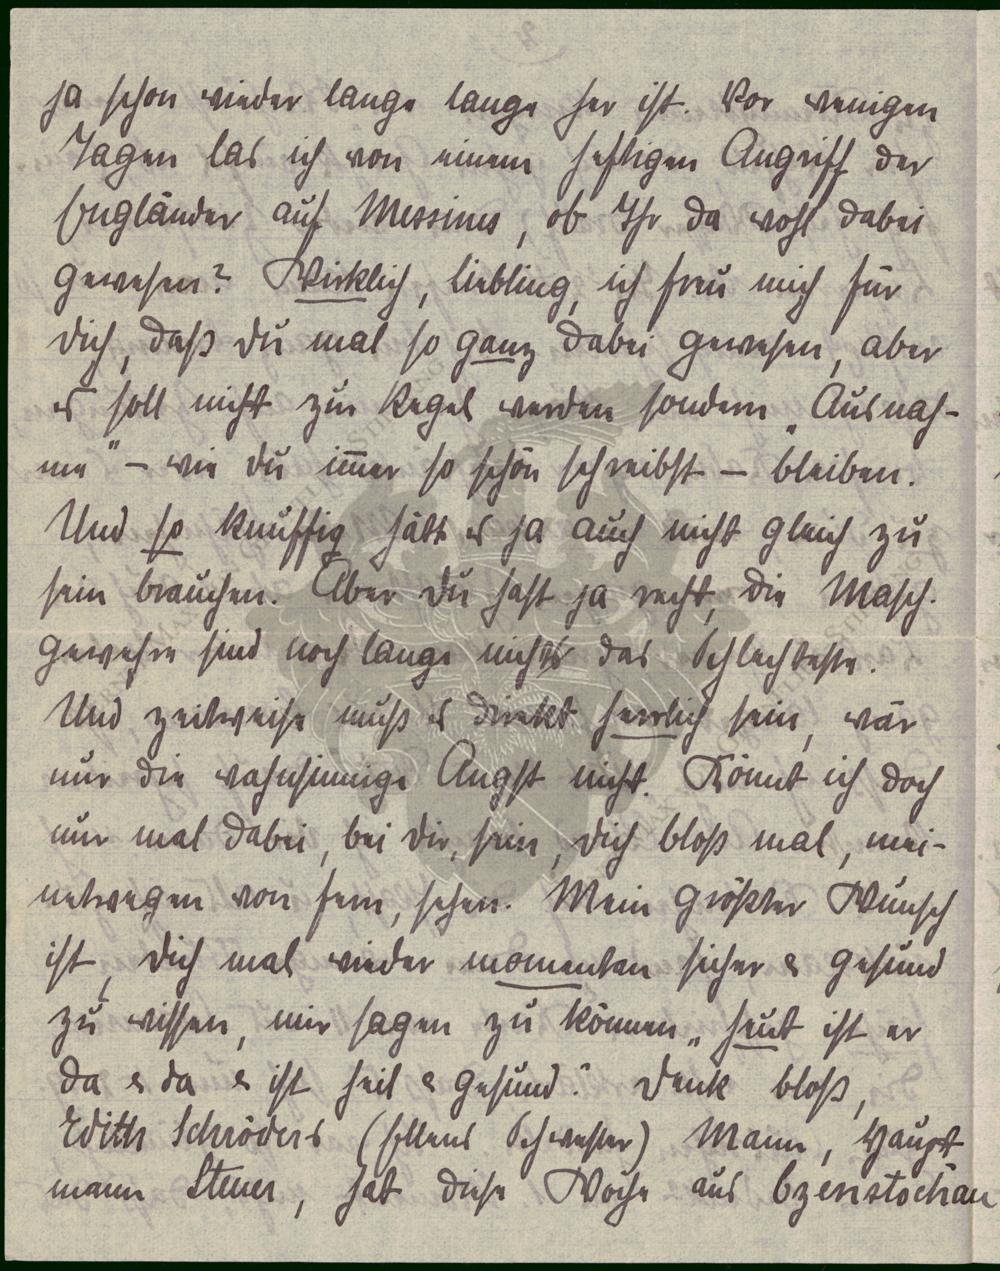 2
ja schon wieder lange lange her ist. Vor wenigen
Tagen las ich von einem heftigen Angriff der
Engländer auf Messines, ob Ihr da wohl dabei
gewesen? Wirklich, Liebling, ich freu mich für
Dich, daß Du mal so ganz dabei gewesen, aber
es soll nicht zur Regel werden sondern „Ausnah-
me" – wie Du im̄er so schön schreibst – bleiben.
Und so knuffig hätt es ja auch nicht gleich zu
sein brauchen. Aber Du hast ja recht, die Masch.
gewehre sind noch lange nicht das Schlechteste.
Und zeitweise muß es direkt herrlich sein, wär
nur die wahnsinnige Angst nicht. Könnt ich doch
nur mal dabei, bei Dir, sein, Dich bloß mal, mei-
netwegen von fern, sehen. Mein größter Wunsch
ist, Dich mal wieder momentan sicher & gesund
zu wissen, mir sagen zu können „heut ist er
da & da & ist heil & gesund." Denk bloß,
Edith Schröders (Ellens Schwester) Mann, Haupt
mann Steuer, hat diese Woche aus Czenstochau